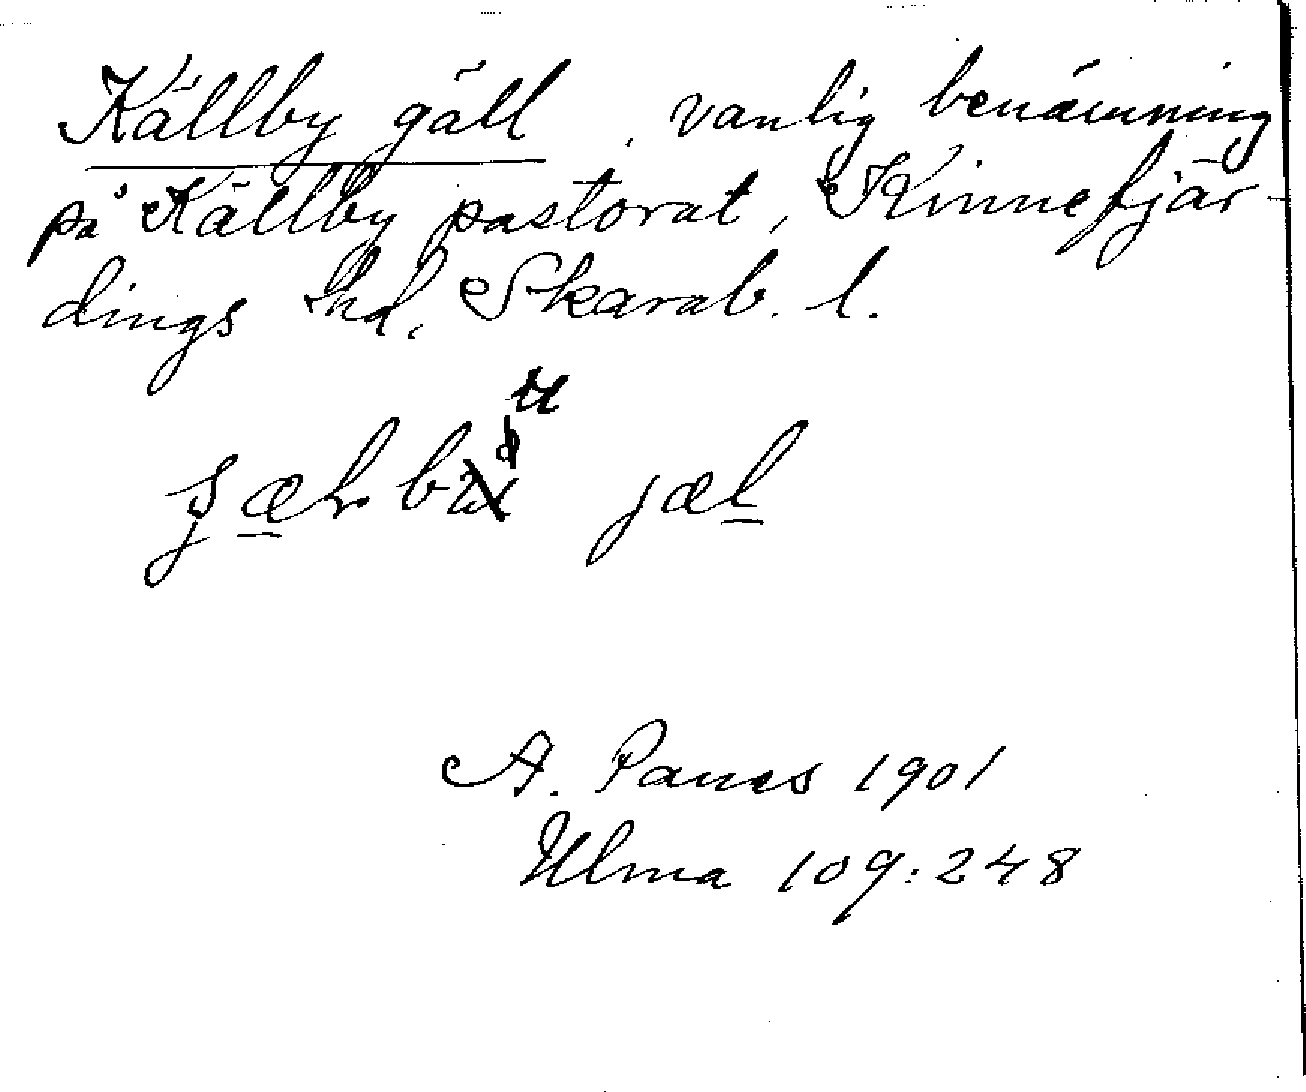 Källby gäll, vanlig benämning
på Källby pastorat, Kinnefjär-
dings hd, Skarab. l.
jæl
A. Panes 1901
Ulma 109:248